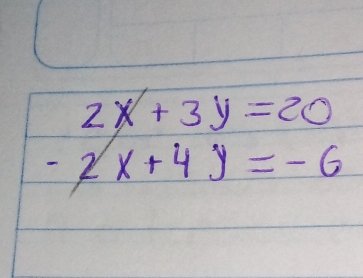 2x + 3y = 20
- 2x + 4y = - 6